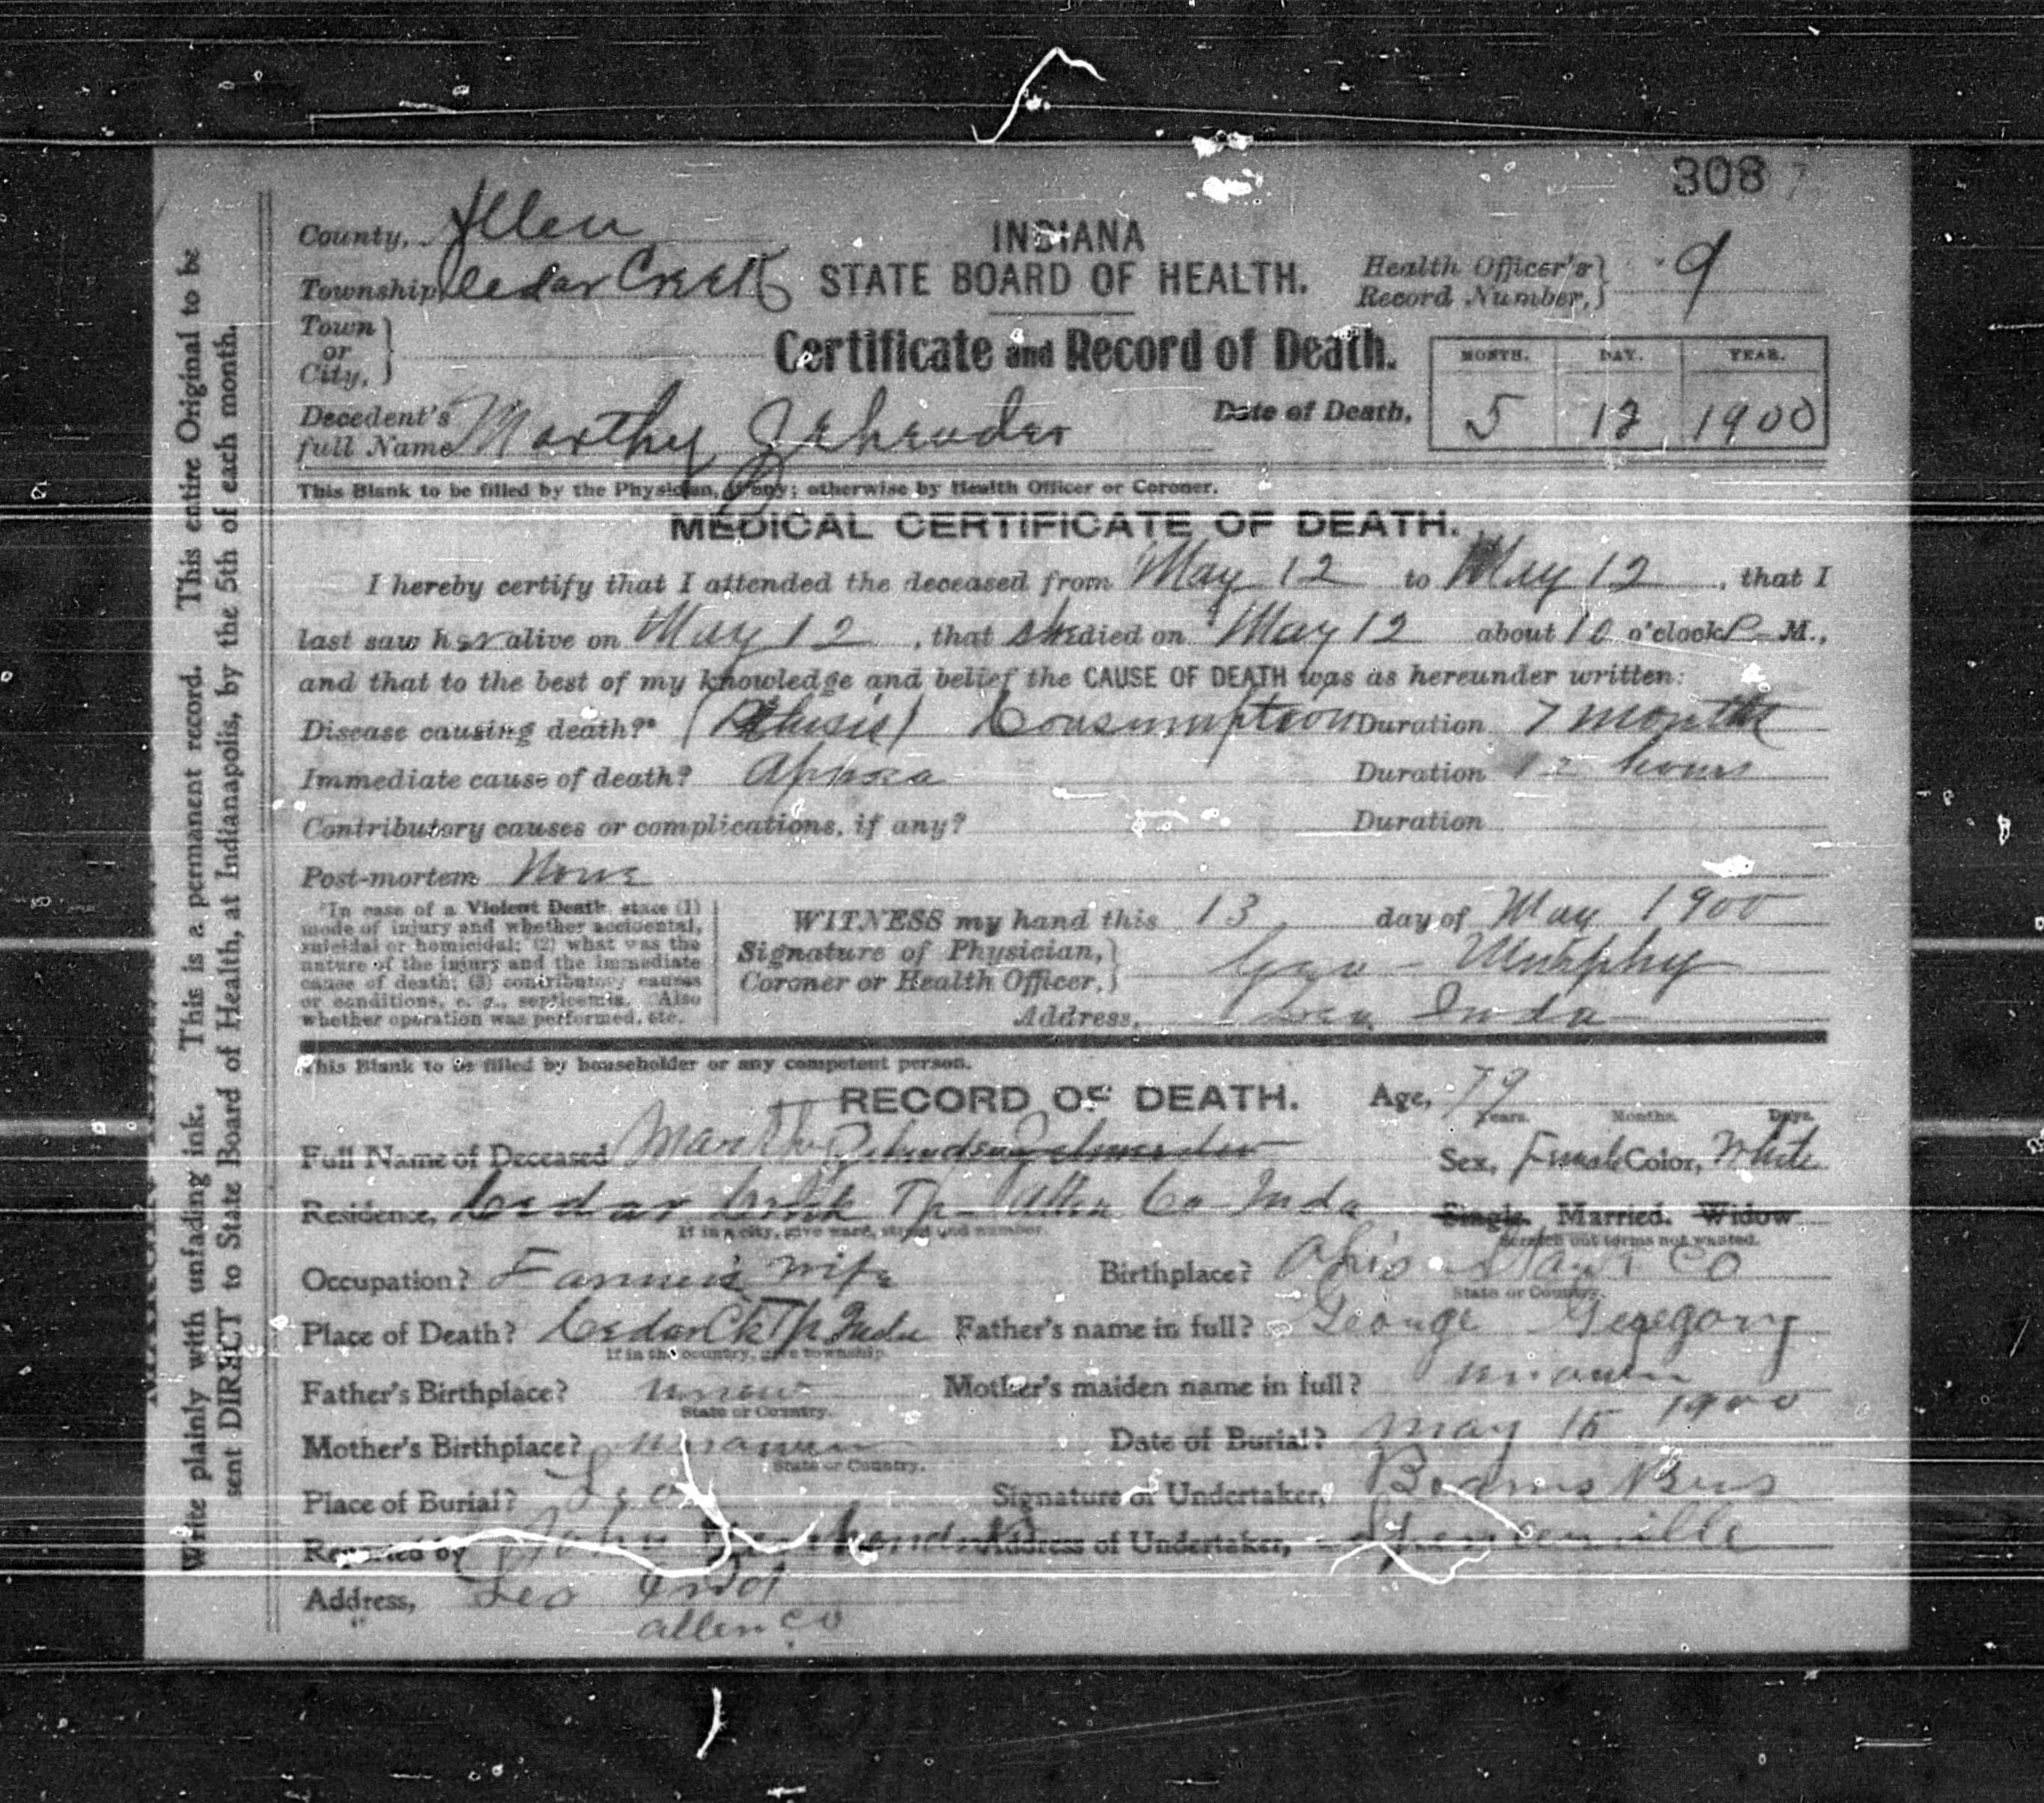 308
County, Allen
INDIANA
Township, Cedar Creek
STATE BOARD OF HEALTH.
Health Officer's Record Number, 9
Town or City,
Certificate and Record of Death.
MONTH. DAY. YEAR.
Decedent's full Name Marthy
Date of Death, 5 12 1900
This Blank to be filled by the Physician, if any; otherwise by Health Officer or Coroner.
MEDICAL CERTIFICATE OF DEATH.
I hereby certify that I attended the deceased from May 12 to May 12, that I
last saw her alive on May 12, that she died on May 12 about 10 o'clock P. M.,
and that to the best of my knowledge and belief the CAUSE OF DEATH was as hereunder written:
Disease causing death?* (Pthisis) Consumption Duration 7 months
Immediate cause of death? Duration 12 hours
Contributory causes or complications, if any? Duration
Post-mortem None
*In case of a Violent Death, state (1)
mode of injury and whether accidental,
suicidal or homicidal; (2) what was the
nature of the injury and the immediate
cause of death; (3) contributory causes
or conditions, e. g., septicemia. Also
whether operation was performed, etc.
WITNESS my hand this 13 day of May 1900
Signature of Physician, Coroner or Health Officer, Geo Murphy
Address, Leo Inda
This Blank to be filled by householder or any competent person.
RECORD OF DEATH. Age, 79
Years. Months. Days.
Full Name of Deceased Marthy
Sex, Female Color, White
Residence, Cedar Creek Tp Allen Co Inda
Single. Married. Widow
If in a city, give ward, street and number.
Scratch out terms not wanted.
Occupation? Farmer's wife Birthplace? Ohio Co
State or Country.
Place of Death? Cedar Ck Tp Inda Father's name in full? George Gregory
If in the country, give township.
Father's Birthplace? Mother's maiden name in full?
State or Country.
Mother's Birthplace? Date of Burial? May 15 1900
State or Country.
Place of Burial? Leo Signature of Undertaker, Beams Bros
Reported by John Address of Undertaker, Spencerville
Address, Leo Ind
Allen Co
Write plainly with unfading ink. This is a permanent record. This entire Original to be
sent DIRECT to State Board of Health, at Indianapolis, by the 5th of each month.